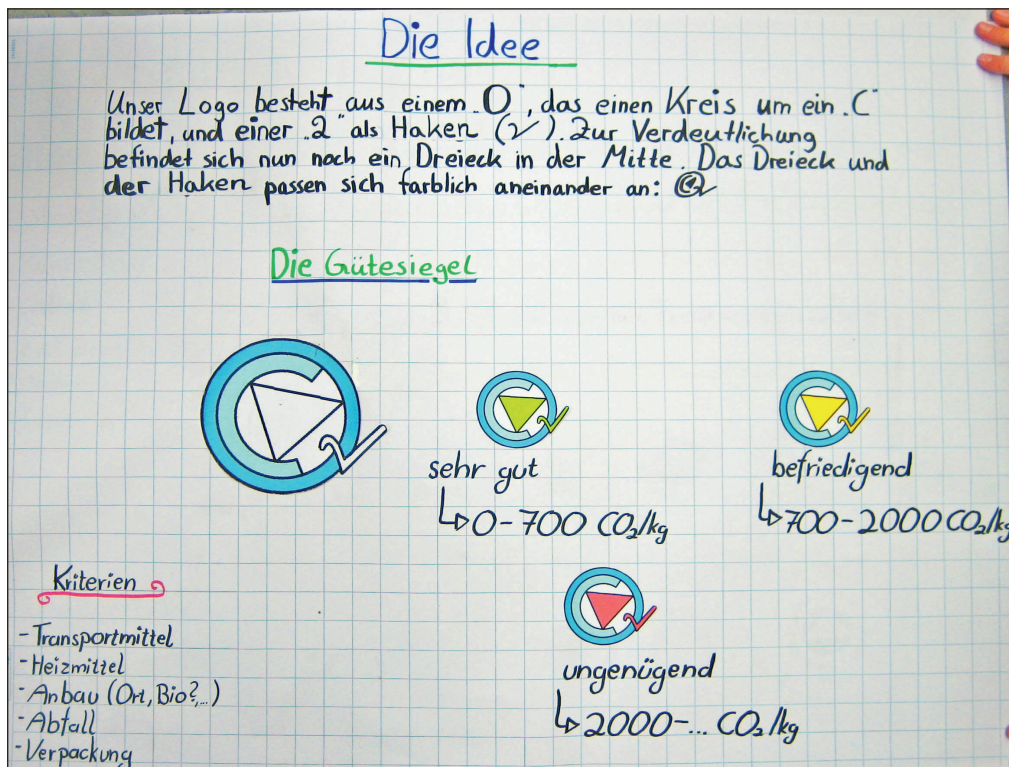 Die Idee
Unser Logo besteht aus einem „O“, das einen Kreis um ein „C“
bildet, und einer „2“ als Haken (✓). Zur Verdeutlichung
befindet sich nun noch ein Dreieck in der Mitte. Das Dreieck und
der Haken passen sich farblich aneinander an:
Die Gütesiegel
sehr gut
↳ 0-700 CO₂/kg
befriedigend
↳ 700-2000 CO₂/kg
ungenügend
↳ 2000-... CO₂/kg
Kriterien
- Transportmittel
- Heizmittel
- Anbau (Ort, Bio?,...)
- Abfall
- Verpackung